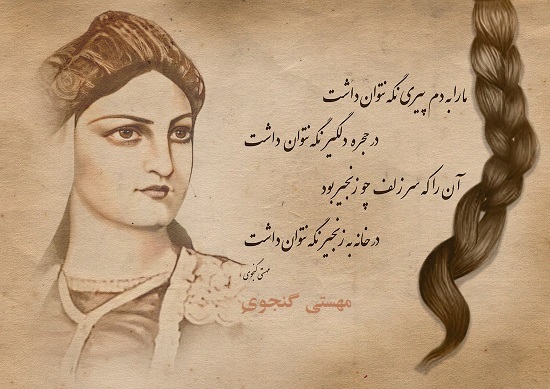 ما را به دم پیری نگه نتوان داشت
در حجره دلگیر نگه نتوان داشت
آن را که سر زلف چو زنجیر بود
در خانه به زنجیر نگه نتوان داشت
مهستی گنجوی
مهستی گنجوی